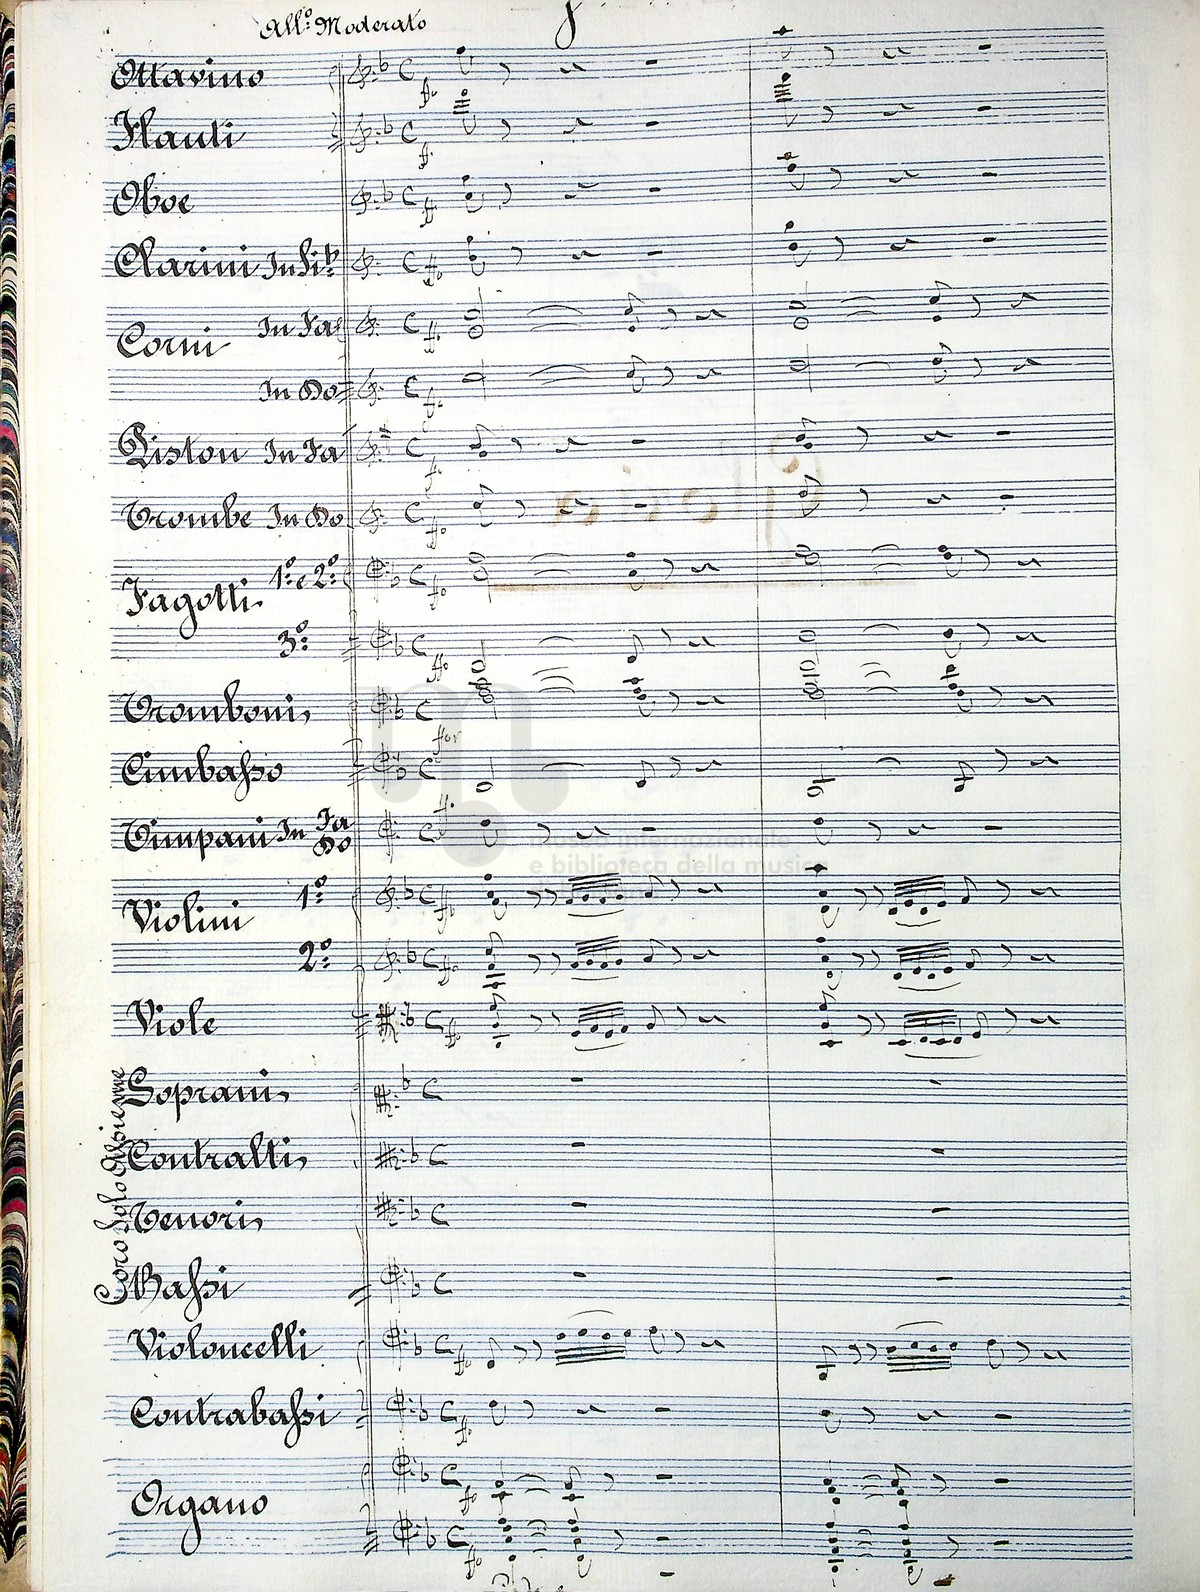 All.º Moderato
Ottavino
Flauti
Oboe
Clarini In Si b
Corni In Fa
In Do
Piston In Fa
Trombe In Do
Fagotti 1.º e 2.º
3.º
Tromboni
Cimbasso
Timpani In Fa Do
Violini 1.º
2.º
Viole
Soprani
Contralti
Tenori
Bassi
Violoncelli
Contrabassi
Organo
museo internazionale
e biblioteca della musica